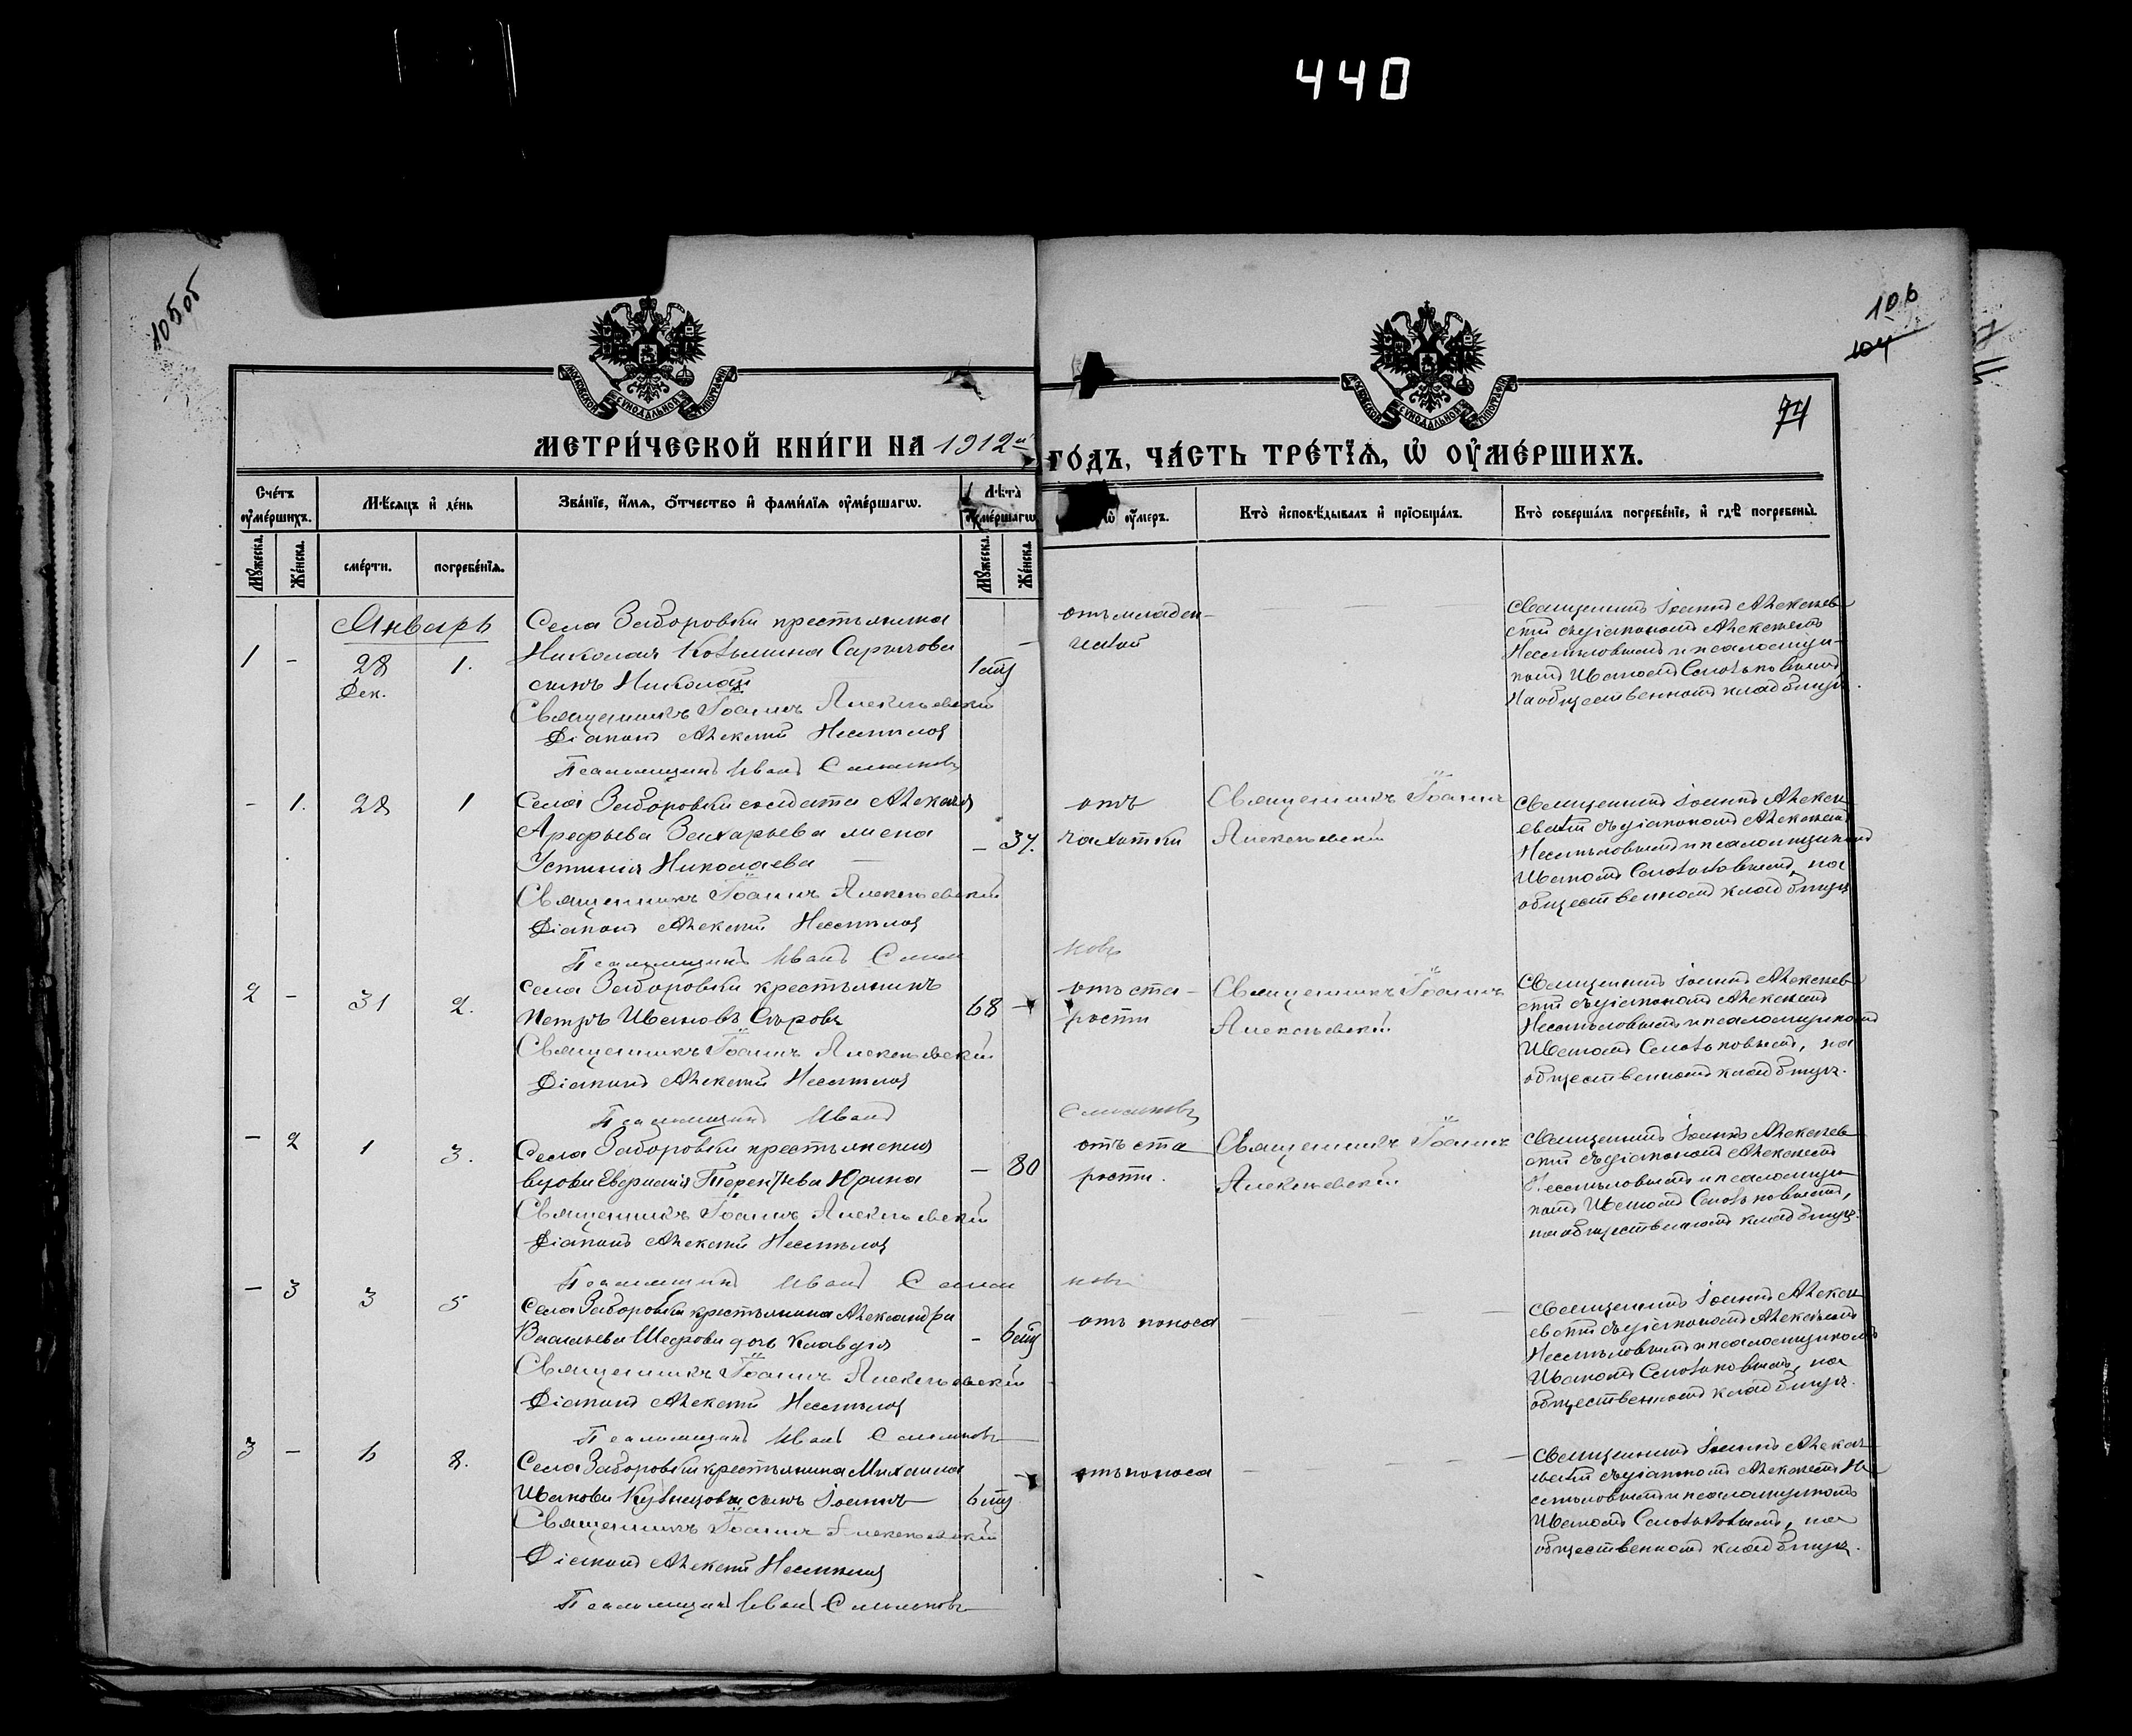 440
105об
106
104
74
МЕТРИ́ЧЕСКОЙ КНИ́ГИ НА 1912й
ГО́ДЪ, ЧА́СТЬ ТРЕ́ТЇѦ, Ѡ҆ ОУ҆МЕ́РШИХЪ.
Сче́тъ оу҆ме́ршихъ.
Мѣ́сяцъ и҆ де́нь
Зва́нїе, и҆́мѧ, о҆́тчество и҆ фами́лїѧ оу҆ме́ршагѡ.
Лѣта̀ оу҆ме́ршагѡ
оу҆́меръ.
Кто̀ и҆сповѣ́дывалъ и҆ прїѡбща́лъ.
Кто̀ соверша́лъ погребе́нїе, и҆ гдѣ̀ погребены̀.
Мꙋ́жеска.
Же́нска.
сме́рти.
погребе́нїѧ.
Мꙋ́жеска.
Же́нска.
Январь
1 - 28 Дек. 1.
Села Заборовки крестьянина
Николая Козьмина Сарычова
сынъ Николай
1
Священникъ Іоаннъ Алексѣевскій
Діаконъ Алексѣй Несмѣловъ
Псаломщикъ Иванъ
отъ младен-
ческой
Священникъ Іоаннъ Алексѣев-
скій съ діакономъ Алексѣемъ
Несмѣловымъ и псаломщи-
комъ Иваномъ
На общественномъ кладбищѣ.
- 1. 28 1
Села Заборовки солдата Алексѣя
Арефьева Захарьева жена
Устинія Николаева
- 37.
Священникъ Іоаннъ Алексѣевскій
Діаконъ Алексѣй Несмѣловъ
Псаломщикъ Иванъ
отъ
чахотки
Священникъ Іоаннъ
Алексѣевскій
Священникъ Іоаннъ Алексѣ-
евскій съ діакономъ Алексѣемъ
Несмѣловымъ и псаломщикомъ
Иваномъ на
общественномъ кладбищѣ
новъ
2 - 31 2.
села Заборовки крестьянинъ
Петръ Ивановъ Сыровъ
68 -
Священникъ Іоаннъ Алексѣевскій
Діаконъ Алексѣй Несмѣловъ
Псаломщикъ Иванъ
отъ ста-
рости
Священникъ Іоаннъ
Алексѣевскій
Священникъ Іоаннъ Алексѣев-
скій съ діакономъ Алексѣемъ
Несмѣловымъ и псаломщикомъ
Иваномъ на
общественномъ кладбищѣ.
- 2 1 3.
Села Заборовки крестьянская
вдова Евфимія Терентьева Юрина
- 80
Священникъ Іоаннъ Алексѣевскій
Діаконъ Алексѣй Несмѣловъ
Псаломщикъ Иванъ
отъ ста
рости.
Священникъ Іоаннъ
Алексѣевскій
Священникъ Іоаннъ Алексѣев-
скій съ діакономъ Алексѣемъ
Несмѣловымъ и псаломщи
комъ Иваномъ
на общественномъ кладбищѣ.
новъ
- 3 3 5
Села Заборовки крестьянина Александра
Васильева Шефова дочь Клавдія
- 6
Священникъ Іоаннъ Алексѣевскій
Діаконъ Алексѣй Несмѣловъ
Псаломщикъ Иванъ
отъ поноса
Священникъ Іоаннъ Алексѣ
евскій съ діакономъ Алексѣемъ
Несмѣловымъ и псаломщикомъ
Иваномъ на
общественномъ кладбищѣ.
3 - 6 8.
Села Заборовки крестьянина Михаила
Иванова Кузнецова сынъ Іоаннъ
6
Священникъ Іоаннъ Алексѣевскій
Діаконъ Алексѣй Несмѣловъ
Псаломщикъ Иванъ
отъ поноса
Священникъ Іоаннъ Алексѣ-
евскій съ діакономъ Алексѣемъ Не
смѣловымъ и псаломщикомъ
Иваномъ на
общественномъ кладбищѣ.